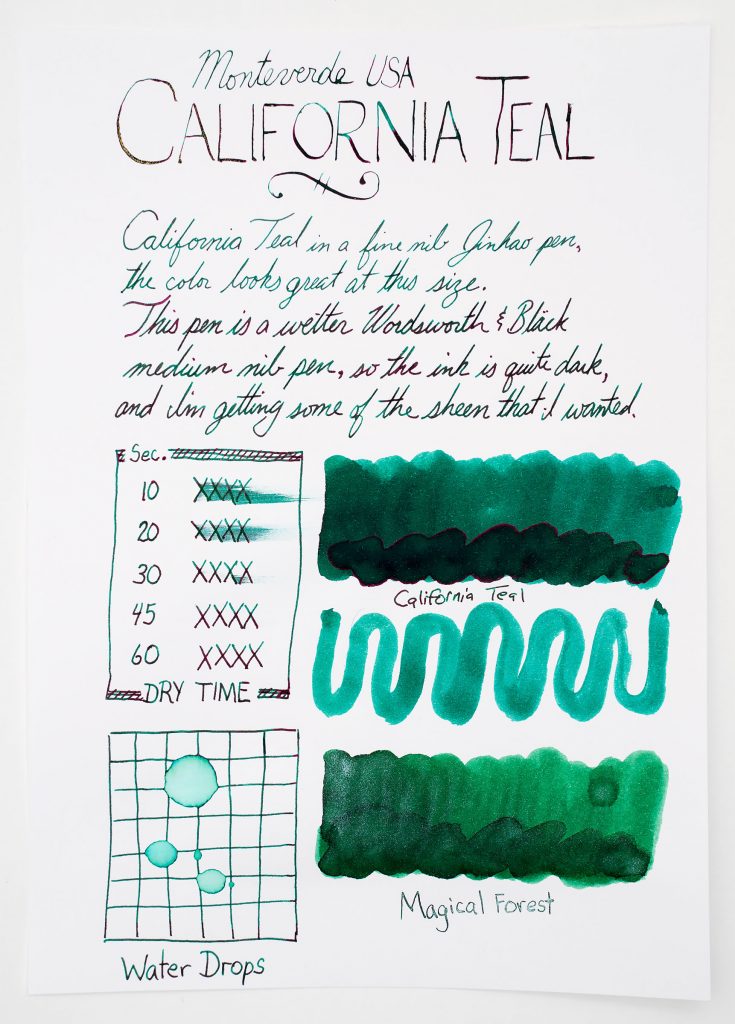 Monteverde USA
CALIFORNIA TEAL
California Teal in a fine nib Jinhao pen,
the color looks great at this size.
This pen is a wetter Wordsworth & Black
medium nib pen, so the ink is quite dark,
and I'm getting some of the sheen that I wanted.
Sec.
10 XXXX
20 XXXX
30 XXXX
45 XXXX
60 XXXX
DRY TIME
California Teal
Magical Forest
Water Drops